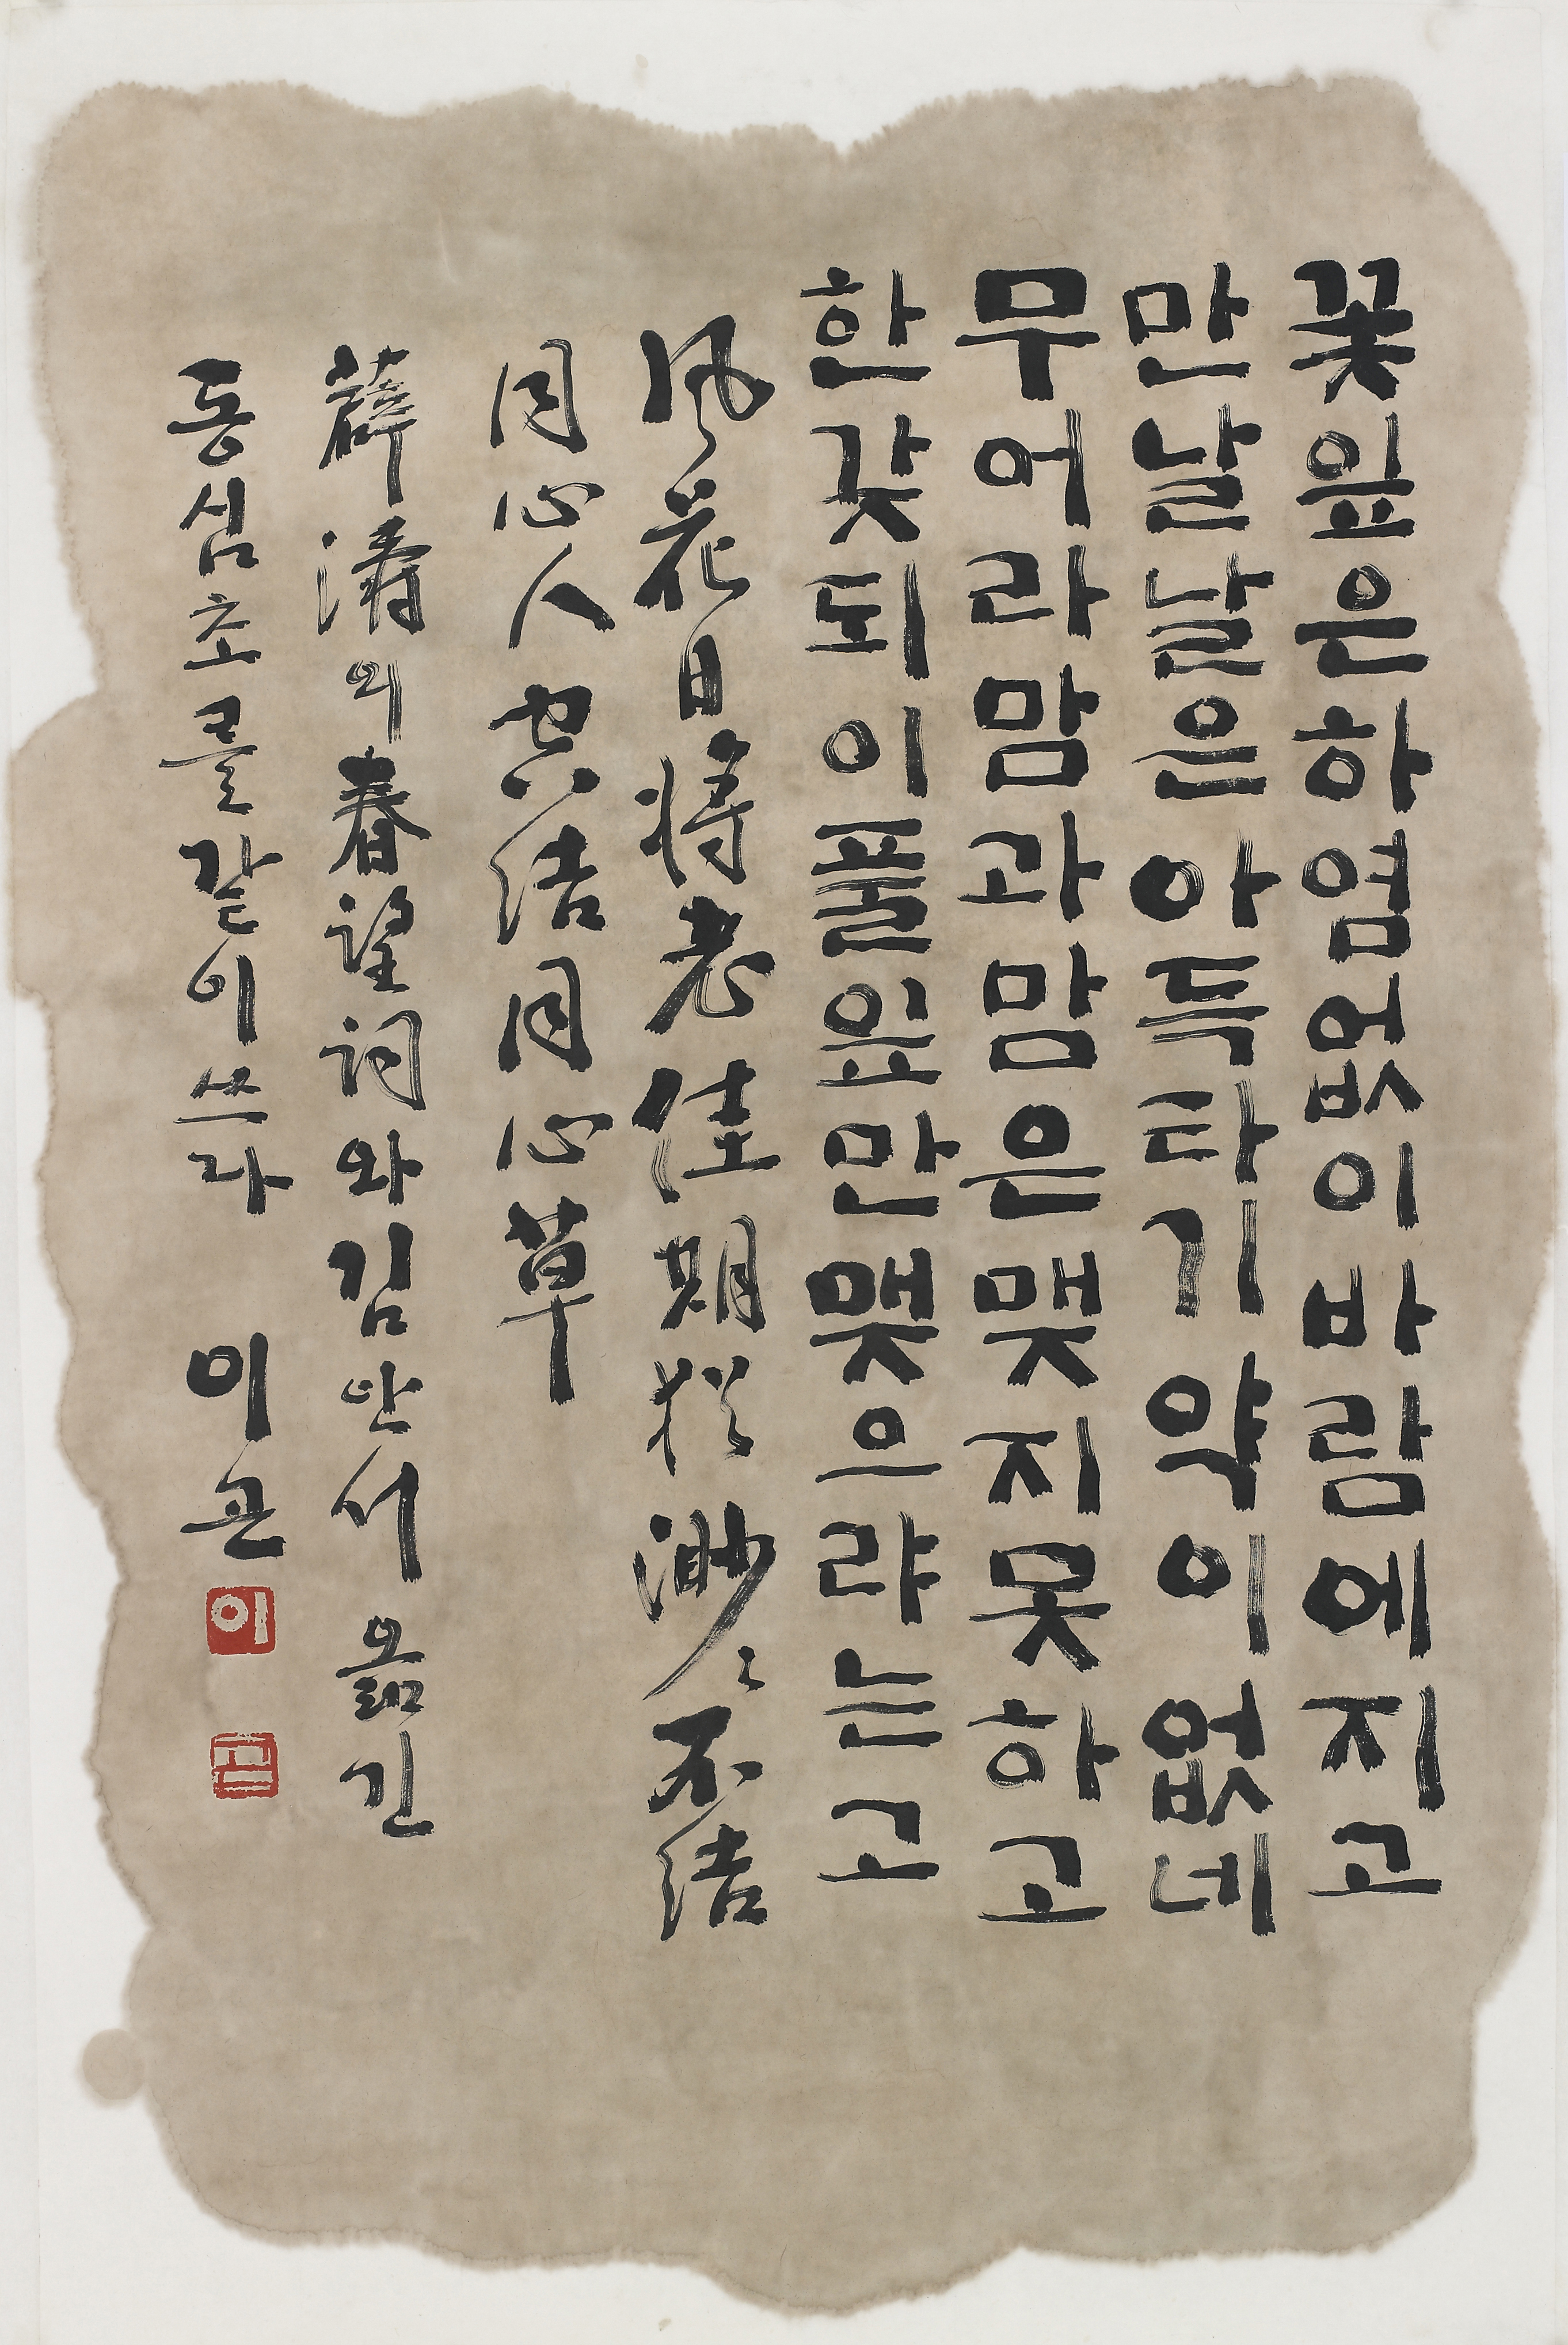 꽃잎은하염없이바람에지고
만날날은아득타기약이없네
무어라맘과맘은맺지못하고
한갖되이풀잎만맺으랴는고
風花日將老佳期猶渺〻不結
同心人空結同心草
薛濤의春望詞와김안서옮긴
동심초를같이쓰다 이곤
이
곤